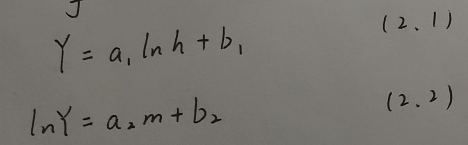 Y = a₁ ln h + b₁ (2.1)
lnY = a₂m + b₂ (2.2)